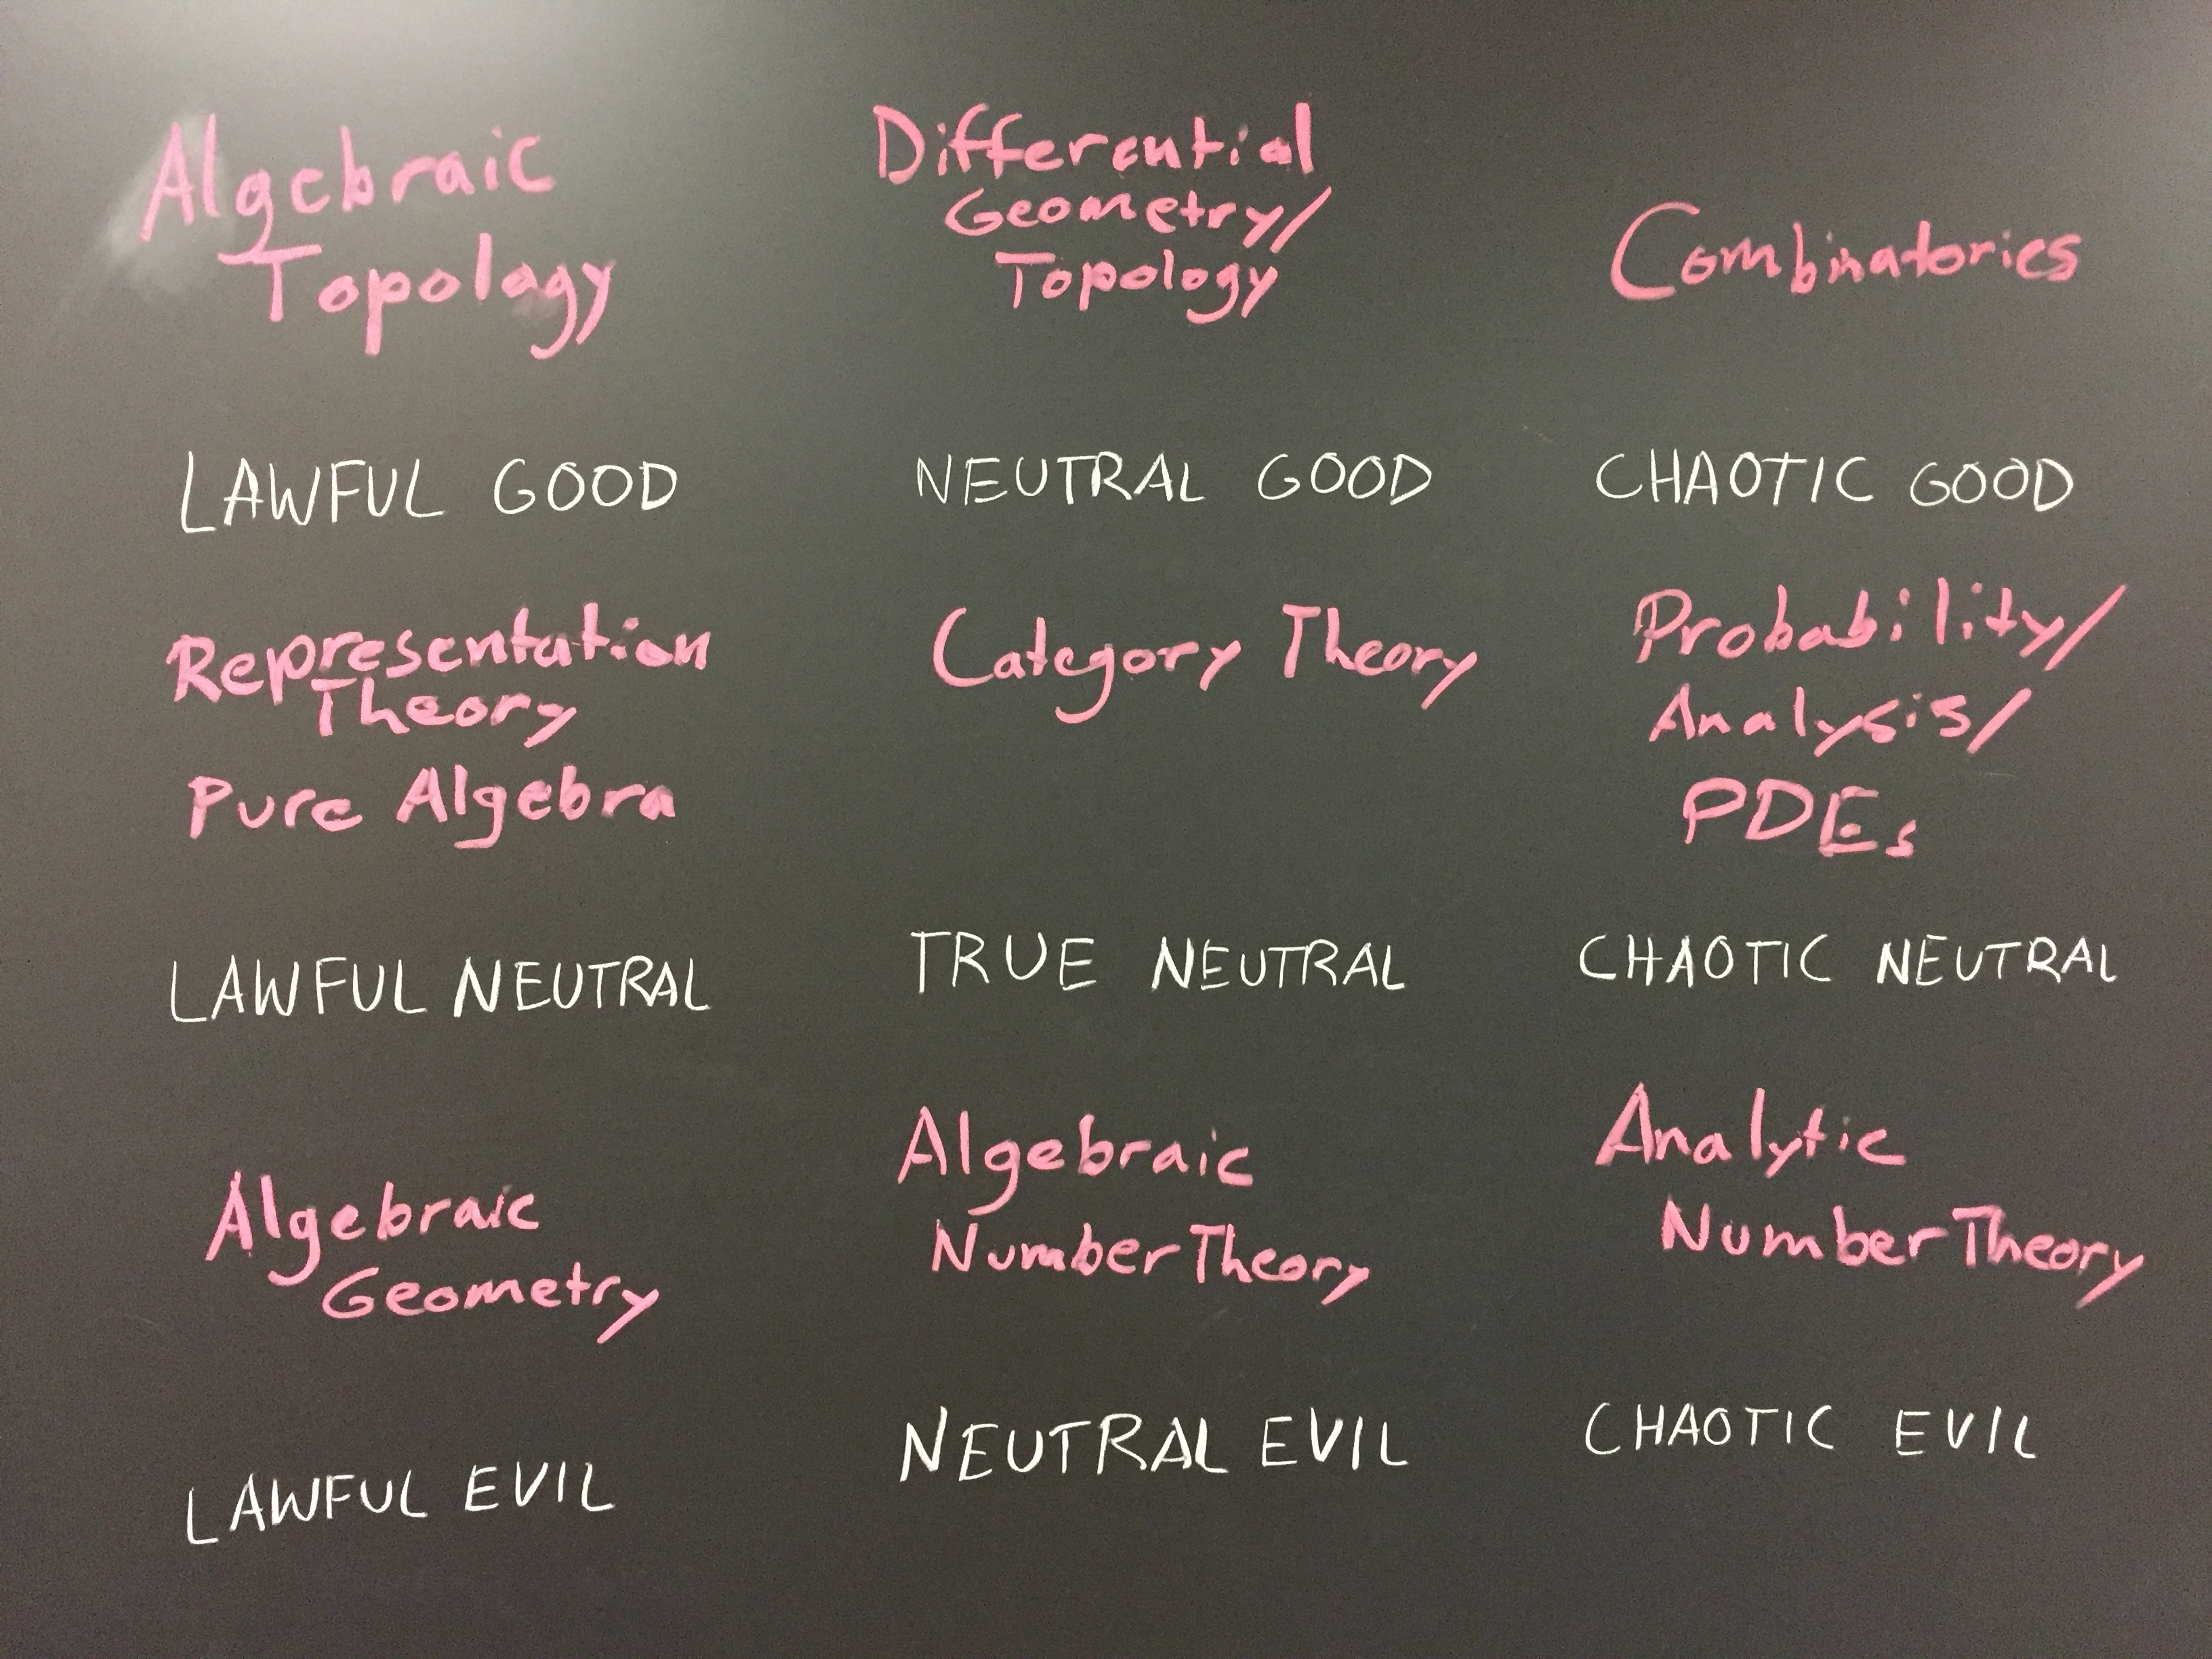 Algebraic
Topology
Differential
Geometry/
Topology
Combinatories
LAWFUL GOOD
NEUTRAL GOOD
CHAOTIC GOOD
Representation
Theory
Pure Algebra
Category Theory
Probability/
Analysis/
PDEs
LAWFUL NEUTRAL
TRUE NEUTRAL
CHAOTIC NEUTRAL
Algebraic
Geometry
Algebraic
Number Theory
Analytic
Number Theory
LAWFUL EVIL
NEUTRAL EVIL
CHAOTIC EVIL